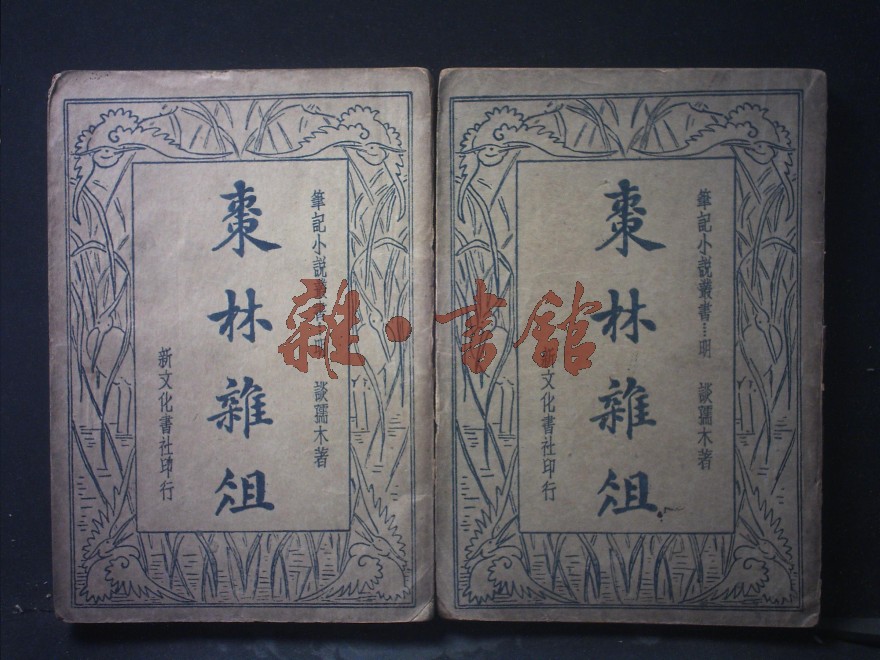 筆記小説叢書…明 談孺木著
棗林雜俎
新文化書社印行
筆記小説叢書…明 談孺木著
棗林雜俎
新文化書社印行
雜·書館